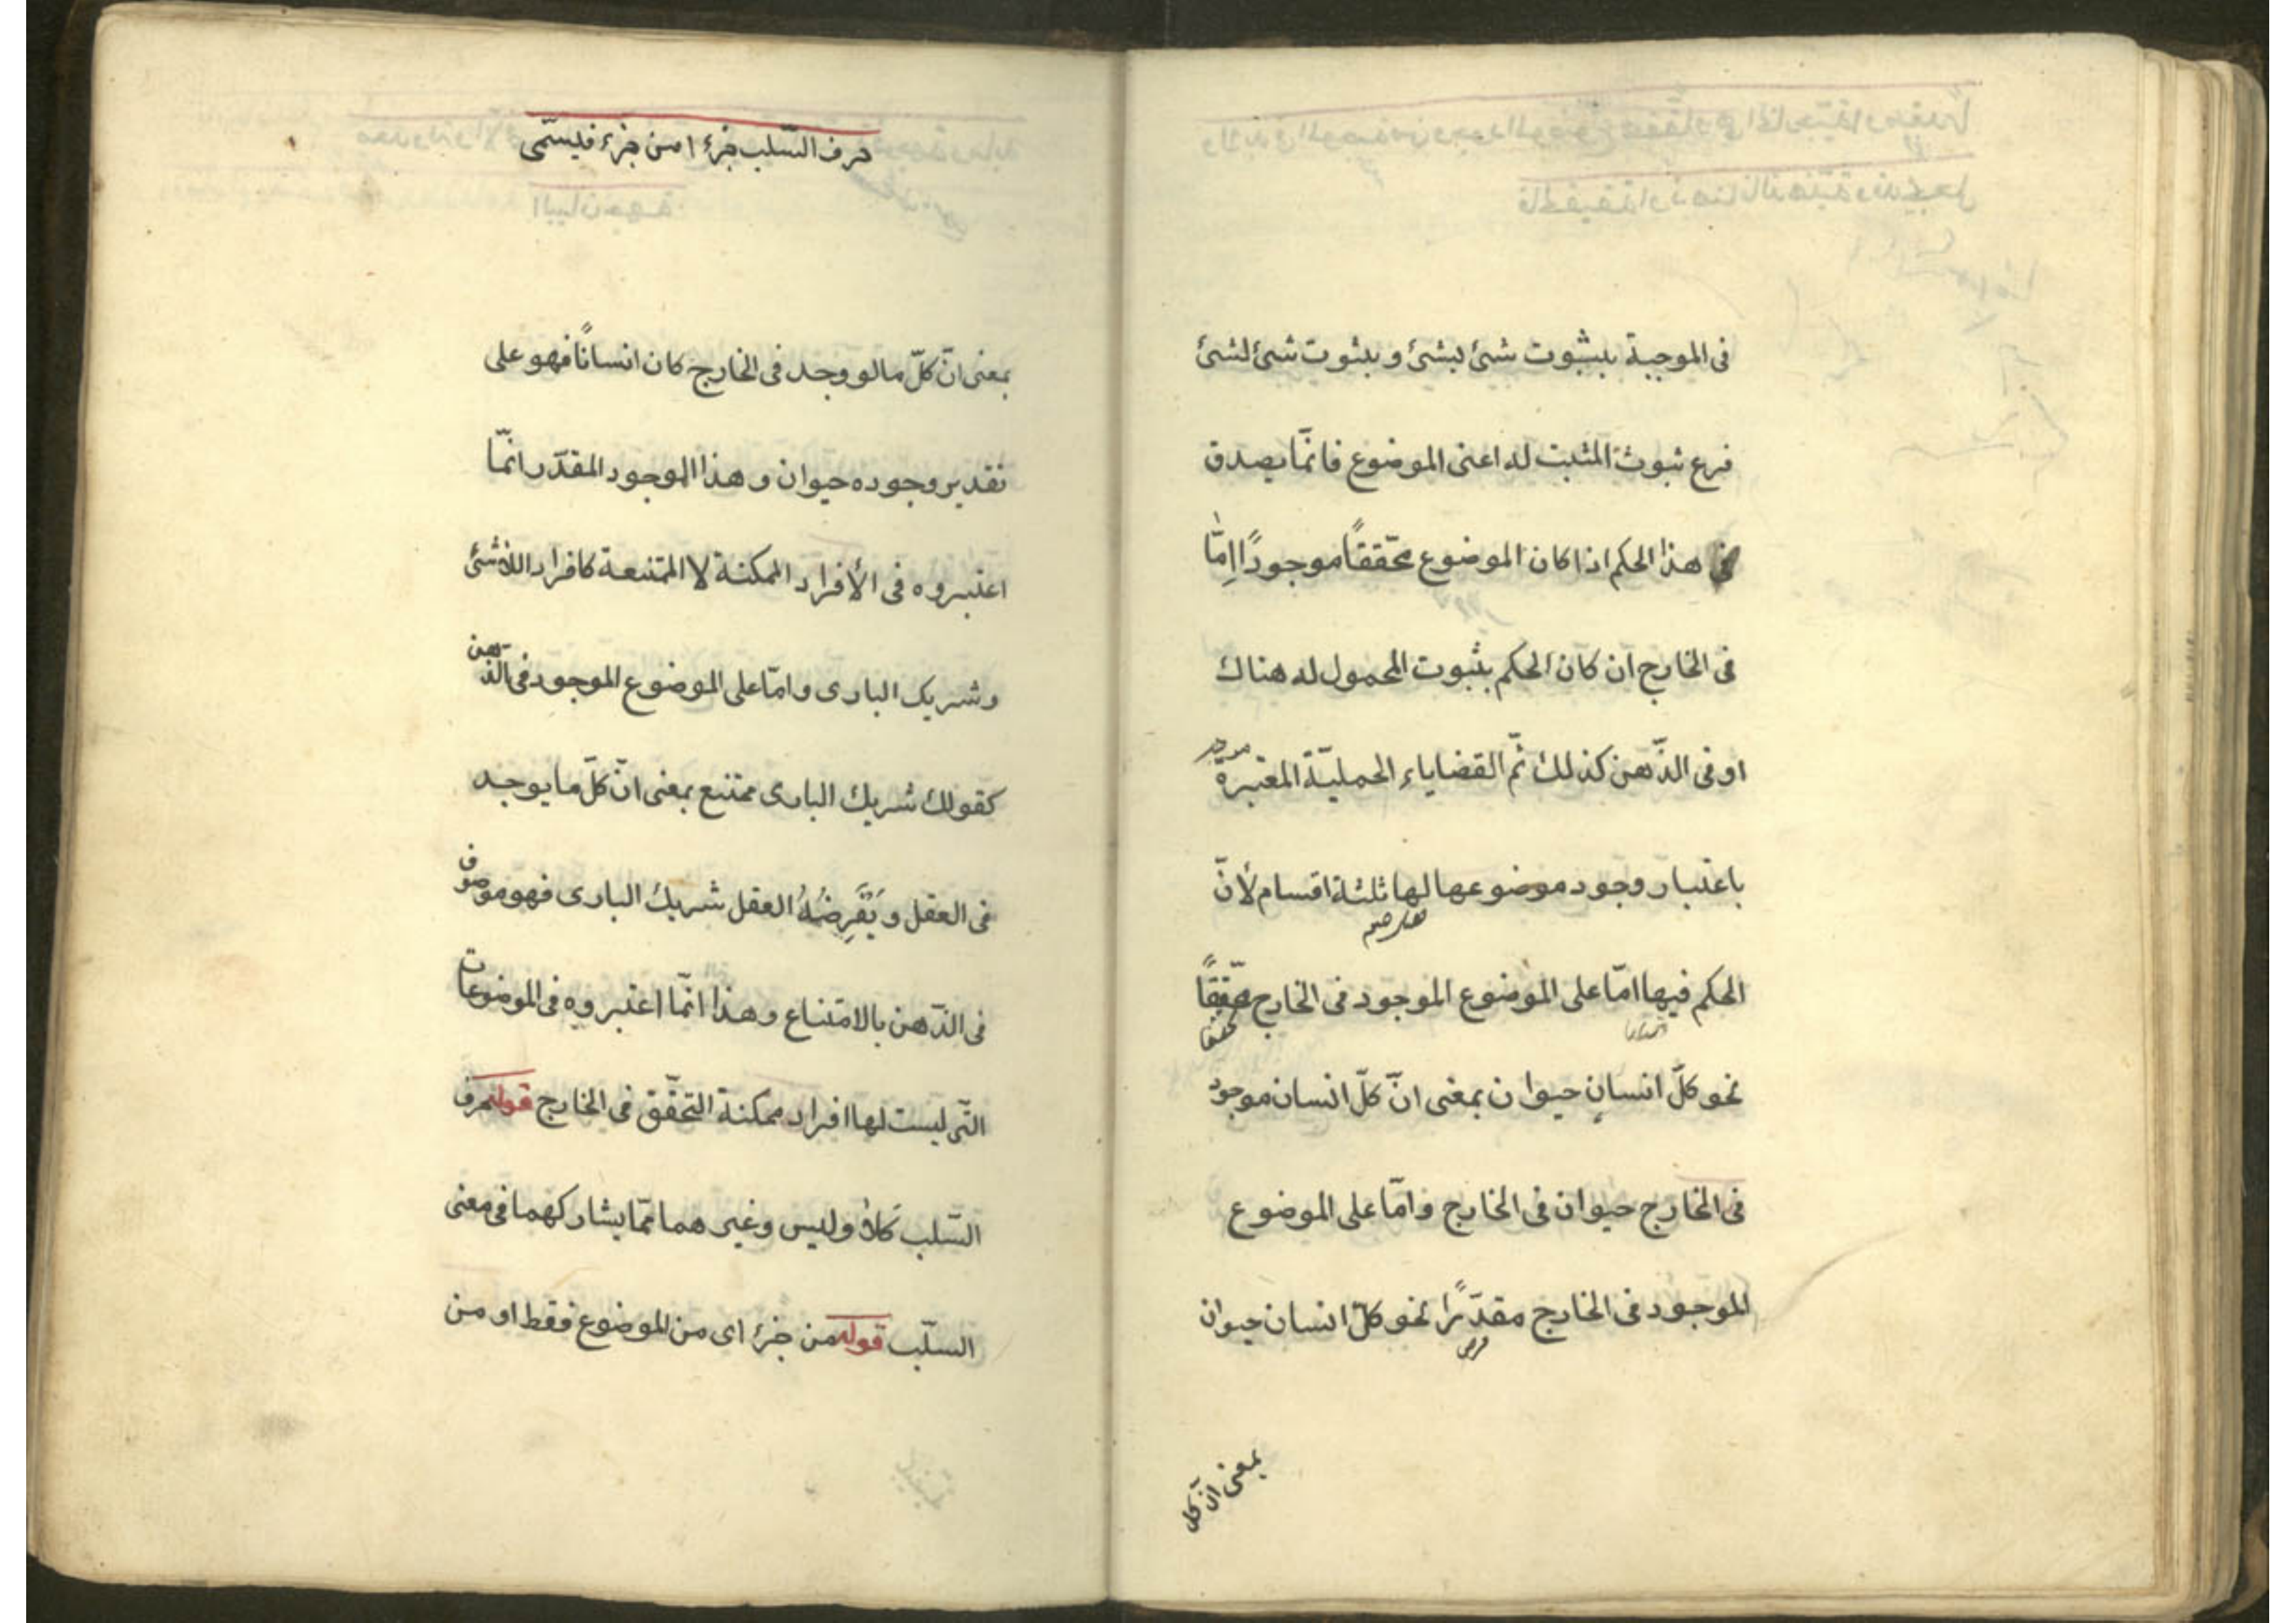 فى الموجبة بثبوت شئ لشئ و بثوت شئ لشئ
فرع ثبوت المثبت له اعنى الموضوع فانّما يصدق
هذا الحكم اذا كان الموضوع محقّقاً موجودًا اِمّا
فى الخارج ان كان الحكم بثبوت المحمول له هناك
او فى الذّهن كذلك ثمّ القضاياء الحمليّة المعتبرة
باعتبار وجود موضوعها لها ثلثة اقسام لأنّ
الحكم فيها امّا على الموضوع الموجود فى الخارج محقّقاً
محققا
نحو كلّ انسانٍ حيوان بمعنى انّ كلّ انسان موجود
فى الخارج حيوان فى الخارج وامّا على الموضوع
الموجود فى الخارج مقدّرًا نحو كلّ انسان حيوان
بمعنى انّ كل
حرف السّلب جزءًا من جزء فيسمّى
بمعنى انّ كلّ ما لو وجد فى الخارج كان انسانًا فهو على
تقدير وجوده حيوان و هذا الموجود المقدّر انمّا
اعتبروه فى الأفراد الممكنة لا الممتنعة كافراد اللاشئ
و شريك البارى وامّا على الموضوع الموجود فى الذّهن
كقولك شريك البارى ممتنع بمعنى انّ كلّ ما يوجد
فى العقل و يَفْرِضُهُ العقل شريك البارى فهو موصوف
فى الذّهن بالامتناع وهذا انّما اعتبروه فى الموضوعات
التّى ليست لها افراد ممكنة التحقّق فى الخارج قوله حرف
السّلب كلا وليس وغير هما ممّا يشاركهما فى معنى
السلّب قوله من جزء اى من الموضوع فقط او من